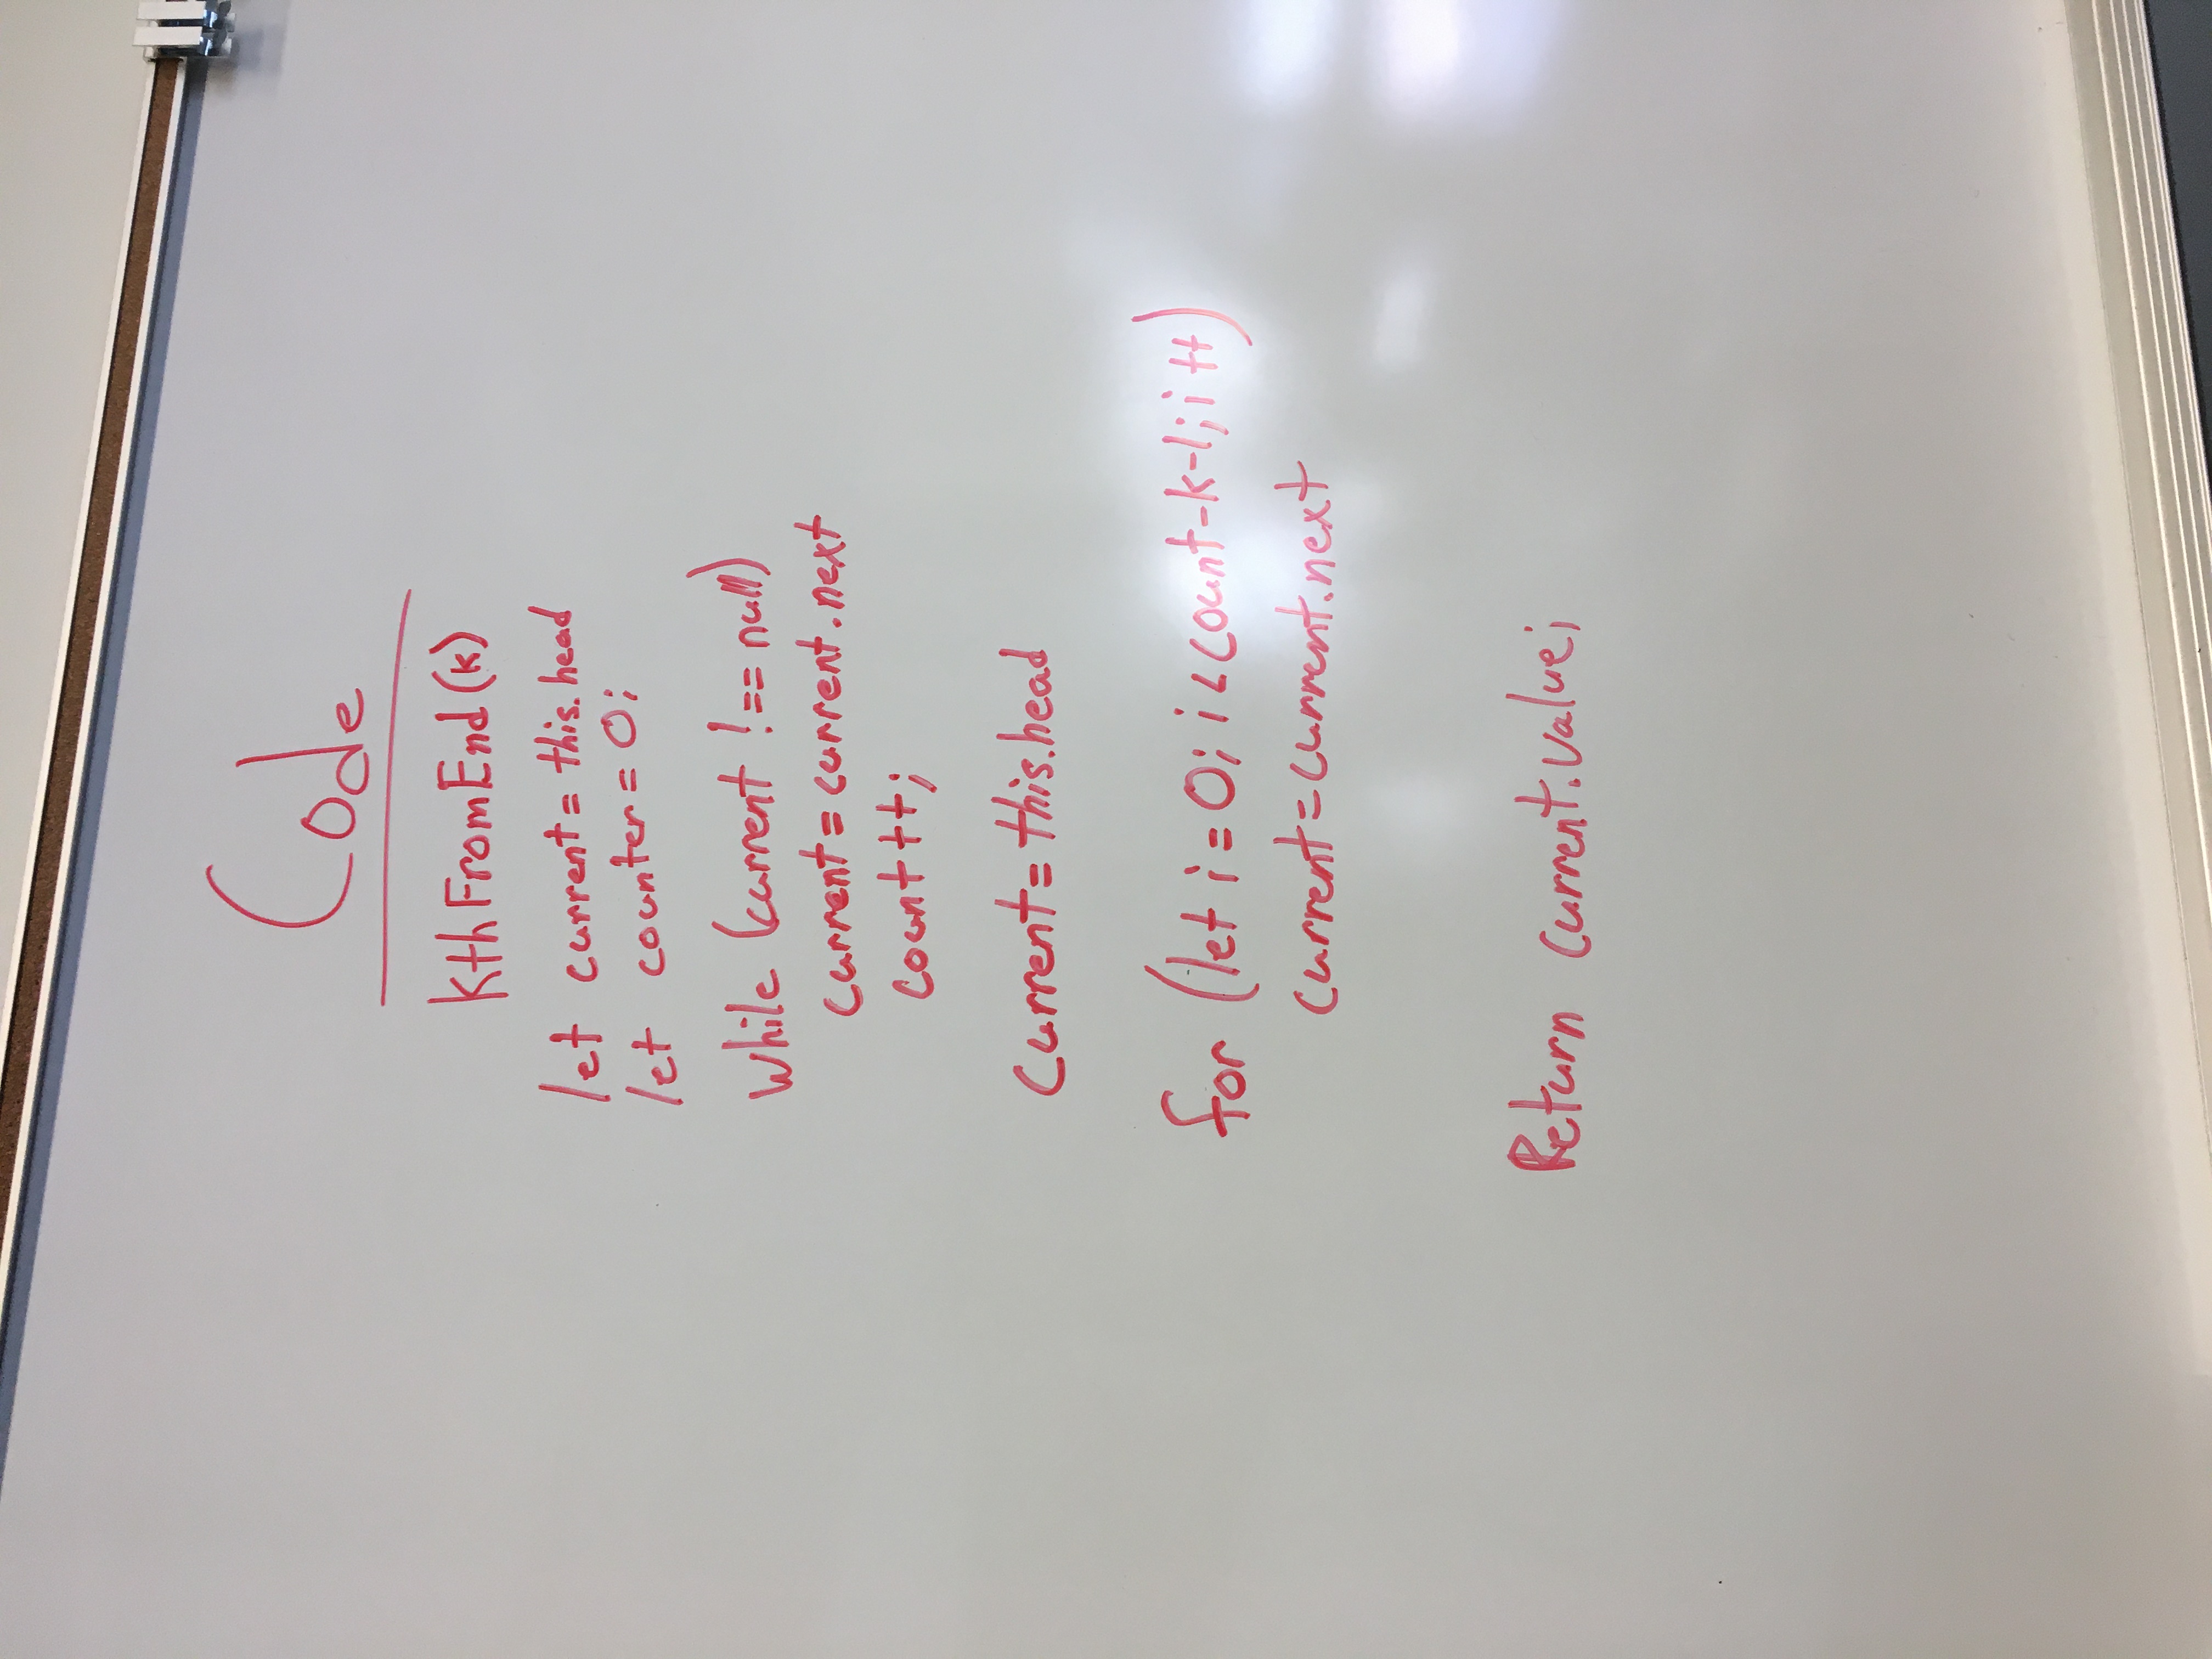 Code
KthFromEnd(k)
let current = this.head
let counter = 0;
while (current !== null)
current = current.next
count++;
current = this.head
for (let i = 0; i < count-k-1; i++)
current = current.next
Return current.value;